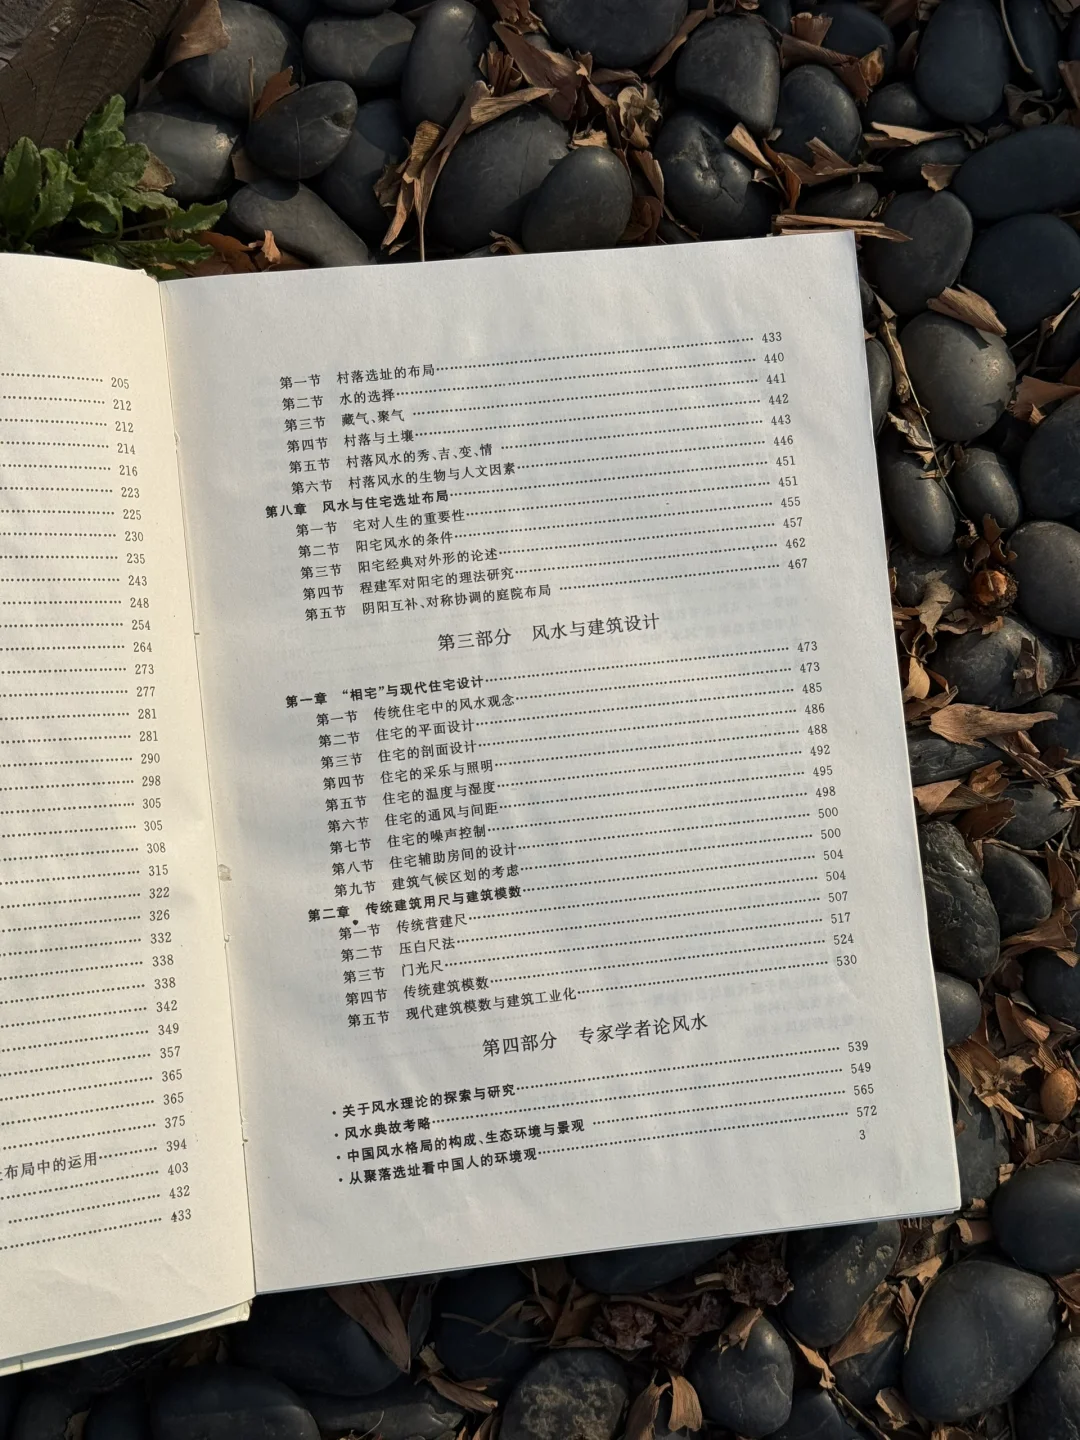 205
212
212
214
216
223
225
230
235
243
248
254
264
273
277
281
281
290
298
305
305
308
315
322
326
332
338
338
342
349
357
365
365
375
布局中的运用……394
403
432
433
第一节 村落选址的布局……433
第二节 水的选择……440
第三节 藏气、聚气……441
第四节 村落与土壤……442
第五节 村落风水的秀、吉、变、情……443
第六节 村落风水的生物与人文因素……446
第八章 风水与住宅选址布局……451
第一节 宅对人生的重要性……451
第二节 阳宅风水的条件……455
第三节 阳宅经典对外形的论述……457
第四节 程建军对阳宅的理法研究……462
第五节 阴阳互补、对称协调的庭院布局……467
第三部分 风水与建筑设计
第一章 “相宅”与现代住宅设计……473
第一节 传统住宅中的风水观念……473
第二节 住宅的平面设计……485
第三节 住宅的剖面设计……486
第四节 住宅的采乐与照明……488
第五节 住宅的温度与湿度……492
第六节 住宅的通风与间距……495
第七节 住宅的噪声控制……498
第八节 住宅辅助房间的设计……500
第九节 建筑气候区划的考虑……500
第二章 传统建筑用尺与建筑模数……504
第一节 传统营建尺……504
第二节 压白尺法……507
第三节 门光尺……517
第四节 传统建筑模数……524
第五节 现代建筑模数与建筑工业化……530
第四部分 专家学者论风水
·关于风水理论的探索与研究……539
·风水典故考略……549
·中国风水格局的构成、生态环境与景观……565
·从聚落选址看中国人的环境观……572
3